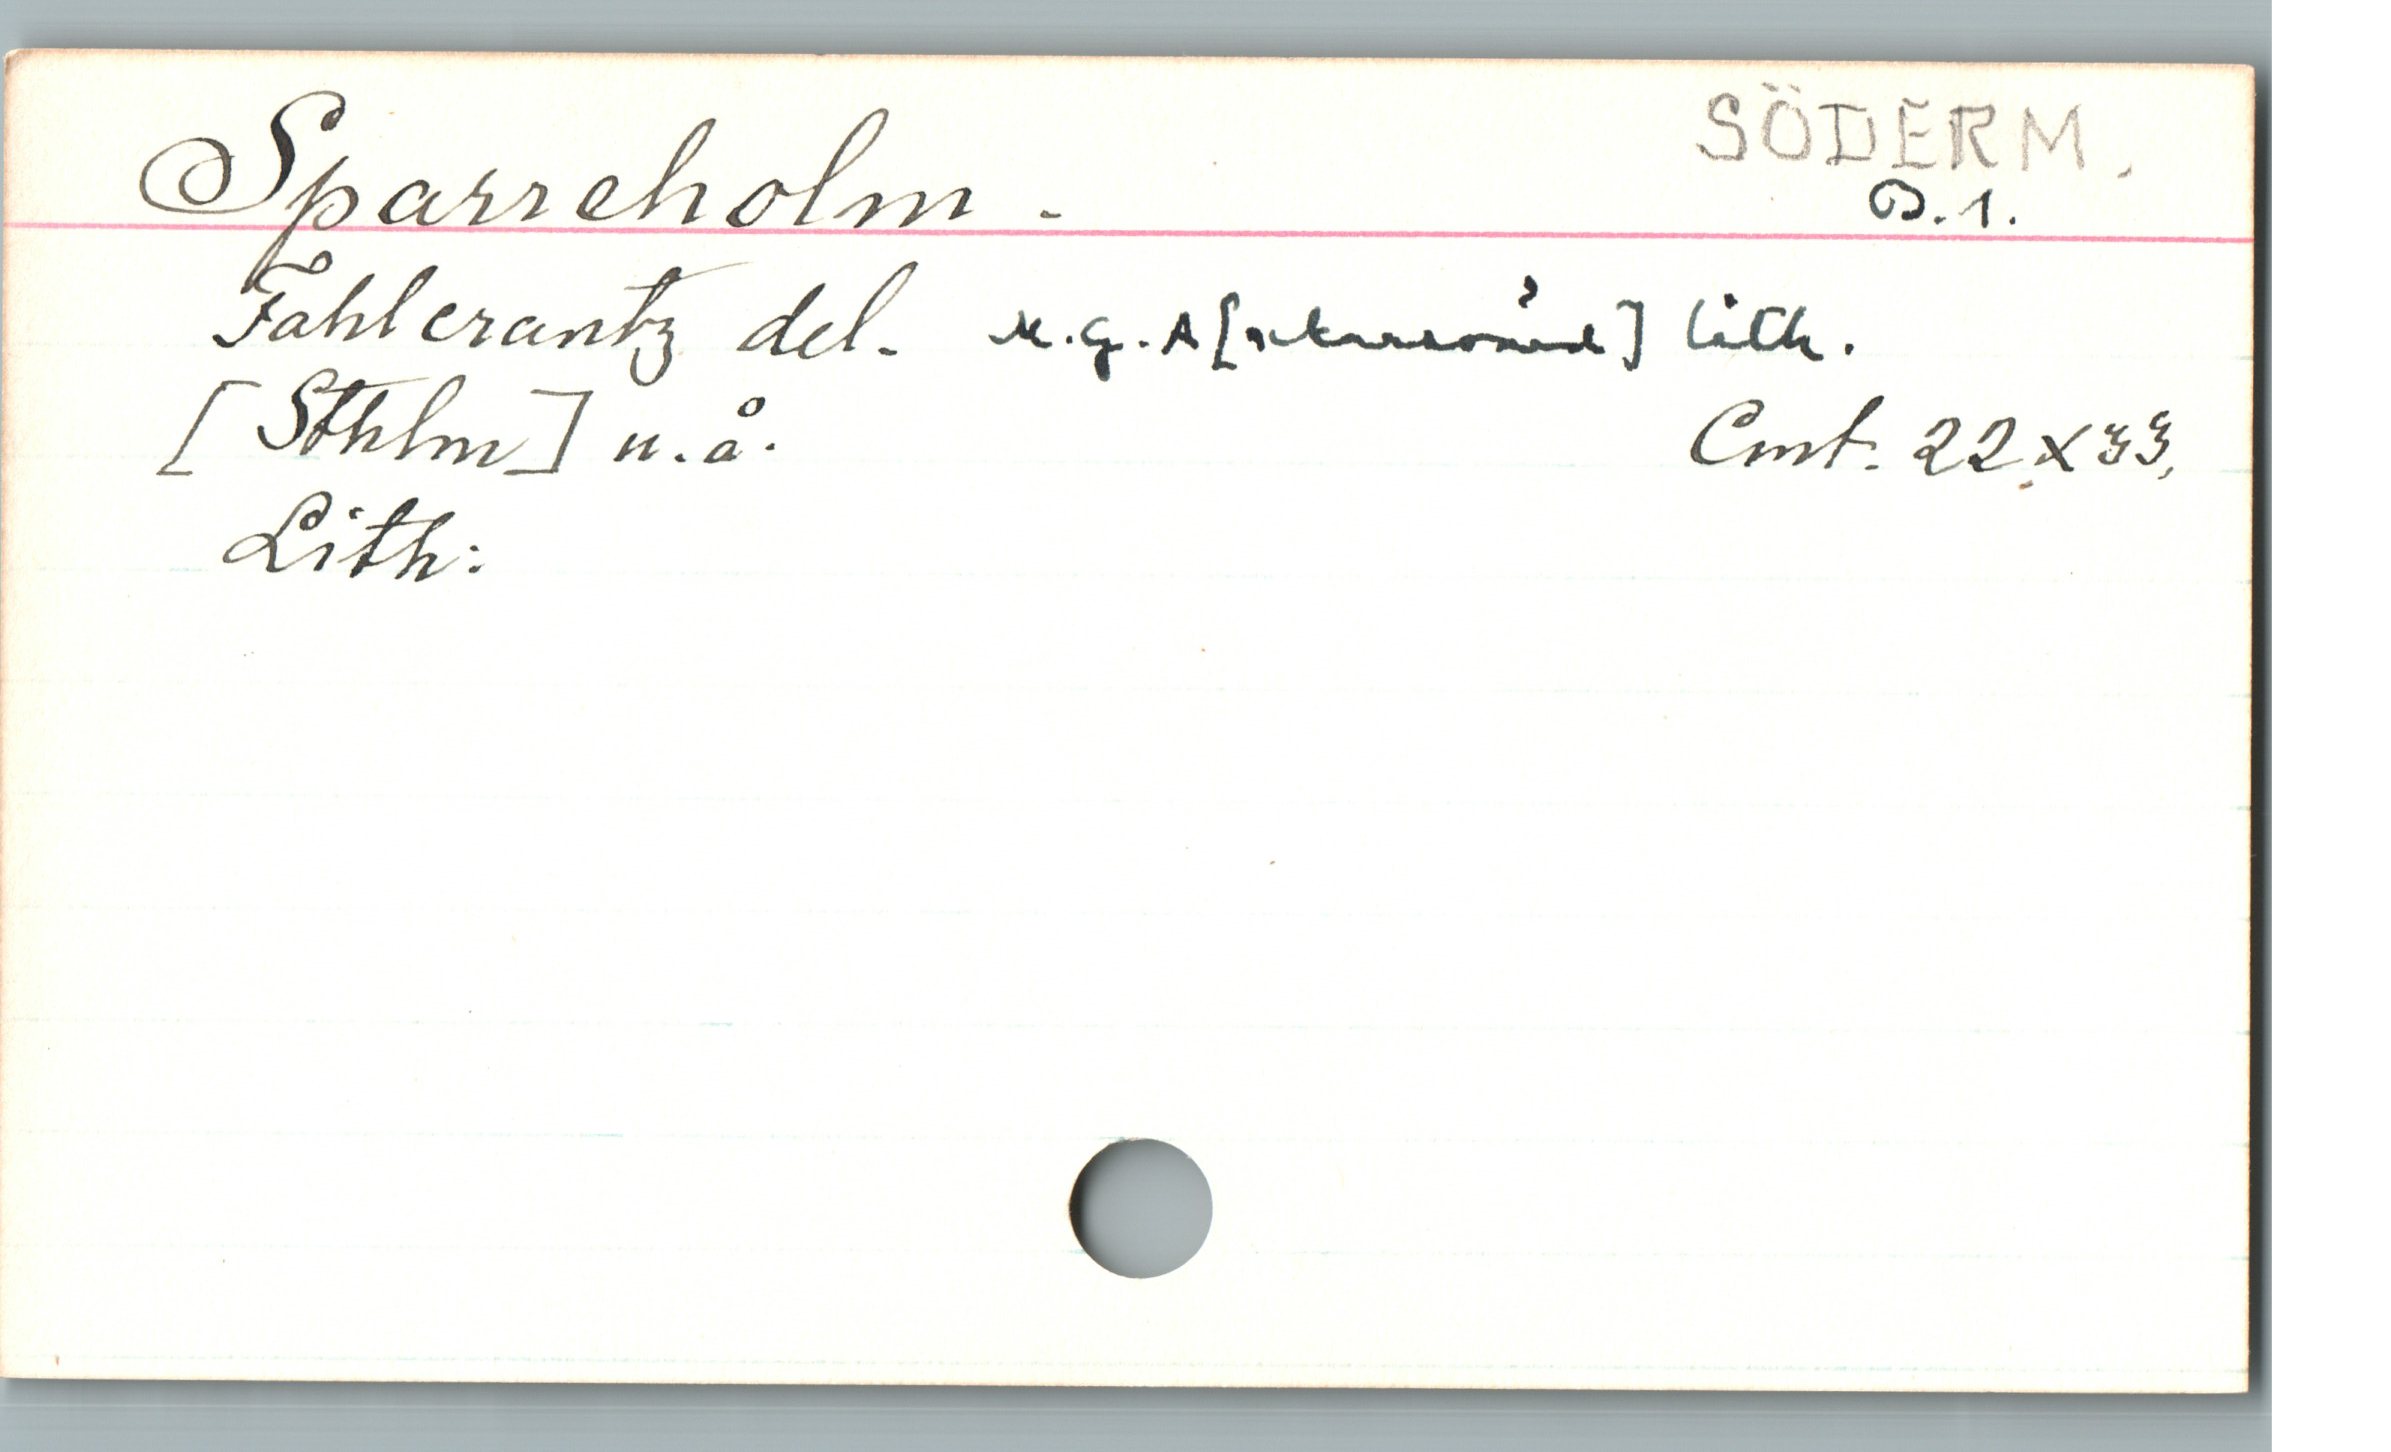 Sparreholm.
SÖDERM.
B.1.
Fahlcrantz del. M.G.A[nckarsvärd] lith.
[Sthlm] u.å. Cmt. 22 x 33,
Lith: